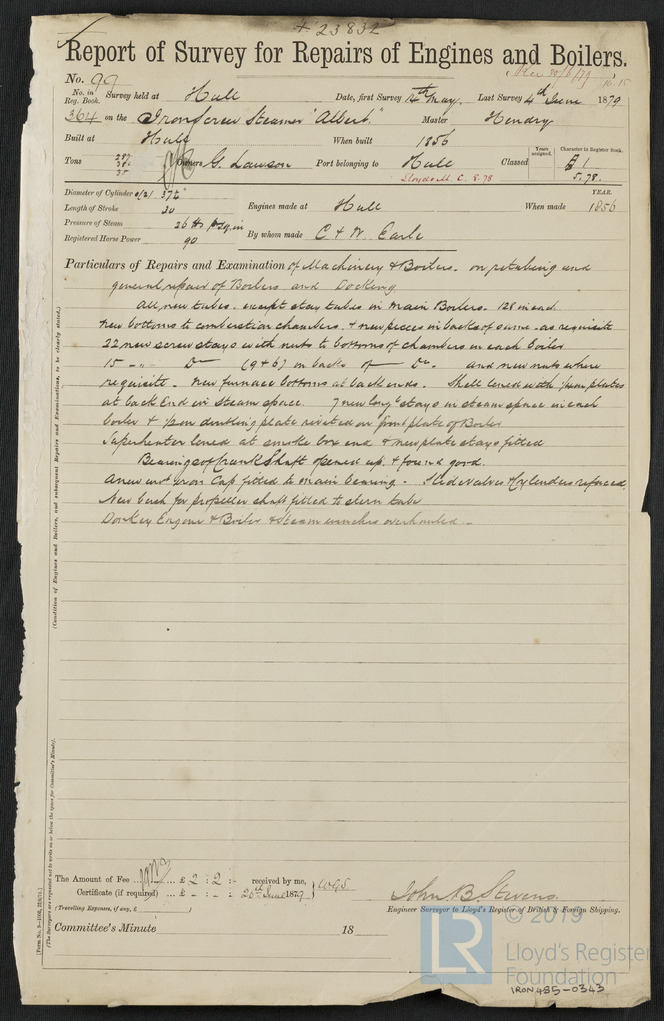 + 23832
Report of Survey for Repairs of Engines and Boilers.
No. 99
No. in Reg. Book. Survey held at Hull Date, first Survey May. Last Survey 4th June 1879
364 on the Iron Screw Steamer "Albert." Master Hendry
Built at Hull When built 1856
Tons Owners G. Lawson Port belonging to Hull Classed Years assigned. Character in Register Book.
Lloyds M. C. 8.78 5.78.
Diameter of Cylinder 37½" YEAR.
Length of Stroke 30 Engines made at Hull When made 1856
Pressure of Steam 26 lbs
Registered Horse Power 90 By whom made C & W. Earle
Particulars of Repairs and Examination of Machinery & Boilers. on retubing and
general repair of Boilers and Docking
All new tubes. except stay tubes in main Boilers. 128 in each
New bottoms to combustion chambers. & new pieces in backs of same as requisite
22 new screw stays with nuts to bottoms of chambers in each Boiler
15 - " - Do (9 & 6) in backs of Do. and new nuts where
requisite. New furnace bottoms at back ends. Shell lined with plates
at back End in Steam space. 7 new long stays in steam space in each
boiler & doubling plate riveted on front plate of Boiler
Superheater lined at smoke box end & new plate stays fitted
Bearings of Crank Shaft opened up. & found good.
A new wrt iron Cap fitted to main bearing. Slide valves & cylinders refaced.
New bush for propeller shaft fitted to stern tube
Donkey Engine & Boiler & Steam winches overhauled.
(Condition of Engines and Boilers, and subsequent Repairs and Examinations, to be clearly stated.)
(The Surveyors are requested not to write on or below the space for Committee's Minute.)
The Amount of Fee ... £ 2 : 2 : - received by me,
Certificate (if required) ... £ - : - : - 26th June 1879
(Travelling Expenses, if any, £ )
John B. Stevens
Engineer Surveyor to Lloyd's Register of British & Foreign Shipping.
Committee's Minute 18
© 2019
LR
Lloyd's Register
Foundation
IRON485-0343